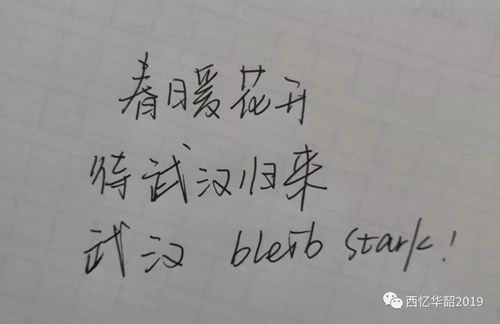 春日暖花开
待武汉归来
武汉 bleib stark!
西忆华韶2019